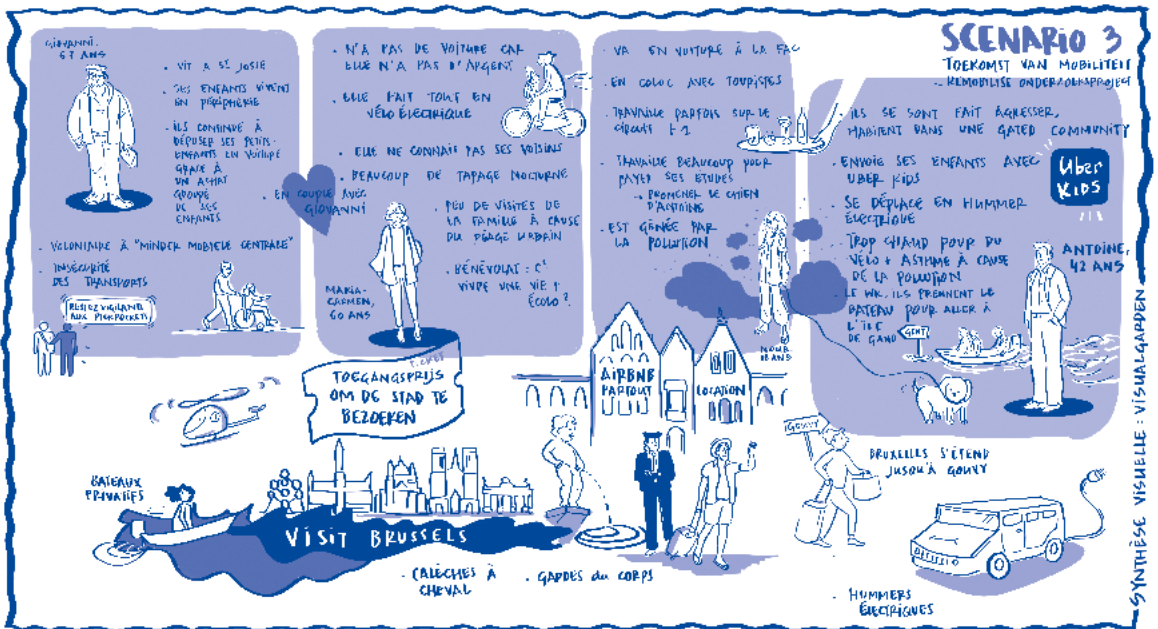 SCENARIO 3
TOEKOMST VAN MOBILITEIT
- REMOBILISE ONDERZOEKSPROJECT
GIOVANNI,
67 ANS
• VIT A ST JOSSE
• SES ENFANTS VIVENT
EN PÉRIPHÉRIE
• ILS CONTINUE À
DÉPOSER SES PETITS-
ENFANTS EN VOITURE
GRACE À
UN ACHAT
GROUPÉ
DE SES
ENFANTS
• VOLONTAIRE À "MINDER MOBIELE CENTRALE"
• INSÉCURITÉ
DES TRANSPORTS
RESTEZ VIGILANTS
AUX PICKPOCKETS
• N'A PAS DE VOITURE CAR
ELLE N'A PAS D'ARGENT
• ELLE FAIT TOUT EN
VÉLO ÉLECTRIQUE
• ELLE NE CONNAIS PAS SES VOISINS
• BEAUCOUP DE TAPAGE NOCTURNE
• EN COUPLE AVEC
GIOVANNI
• PEU DE VISITES DE
LA FAMILLE À CAUSE
DU PÉAGE URBAIN
• BÉNÉVOLAT : C'
VIVRE UNE VIE +
ÉCOLO ?
MARIA-
CARMEN,
60 ANS
• VA EN VOITURE À LA FAC
• EN COLOC AVEC TOURISTES
• TRAVAILLE PARFOIS SUR LE
CIRCUIT F1
• TRAVAILLE BEAUCOUP POUR
PAYER SES ÉTUDES
→ PROMENER LE CHIEN
D'ANTOINE
• EST GÊNÉE PAR
LA POLLUTION
NOUR
18 ANS
• ILS SE SONT FAIT AGRESSER,
HABITENT DANS UNE GATED COMMUNITY
• ENVOIE SES ENFANTS AVEC
UBER KIDS
UBER
KIDS
• SE DÉPLACE EN HUMMER
ÉLECTRIQUE
• TROP CHAUD POUR DU
VÉLO + ASTHME À CAUSE
DE LA POLLUTION
• LE WK, ILS PRENNENT LE
BATEAU POUR ALLER À
L'ÎLE
DE GAND
GENT
ANTOINE,
42 ANS
TICKET
TOEGANGSPRIJS
OM DE STAD TE
BEZOEKEN
AIRBNB
PARTOUT
LOCATION
GOUVY
BRUXELLES S'ÉTEND
JUSQU'À GOUVY
BATEAUX
PRIVATIFS
VISIT BRUSSELS
• CALÈCHES À
CHEVAL
• GARDES du CORPS
• HUMMERS
ÉLECTRIQUES
SYNTHÈSE VISUELLE : VISUALGARDEN